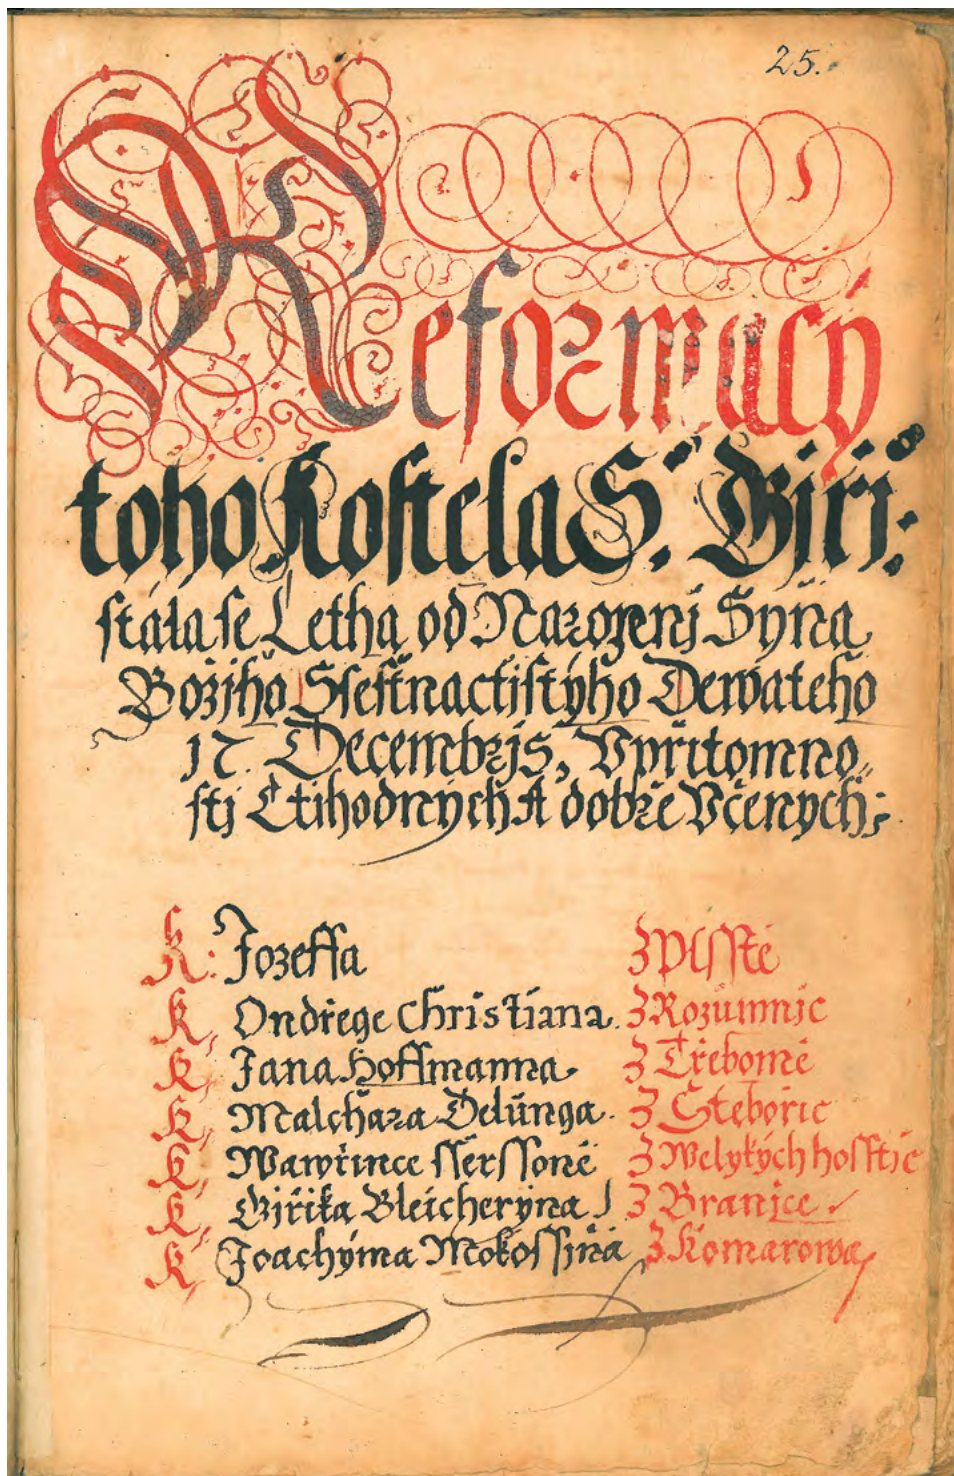 25.
Reformacy
toho Kostela S. Girj:
stala se Letha od Narozenj Syna
Božjho Ssestnactistýho Dewateho
17. Decembrjs, Vpřitomno„
stj Ctihodných A dobře Včených:
K: Jozeffa Z Plsstě
K, Ondřege Christiana. Z Rozumnic
K, Jana Hoffmanna. Z Třebomě
K, Malchara Delünga. Z Stebořic
K, Wawřince sserssoně Z Welykých hosstic
K, Giřika Bleicheryna Z Branice
K, Joachýma Mokossyna Z Komarowa